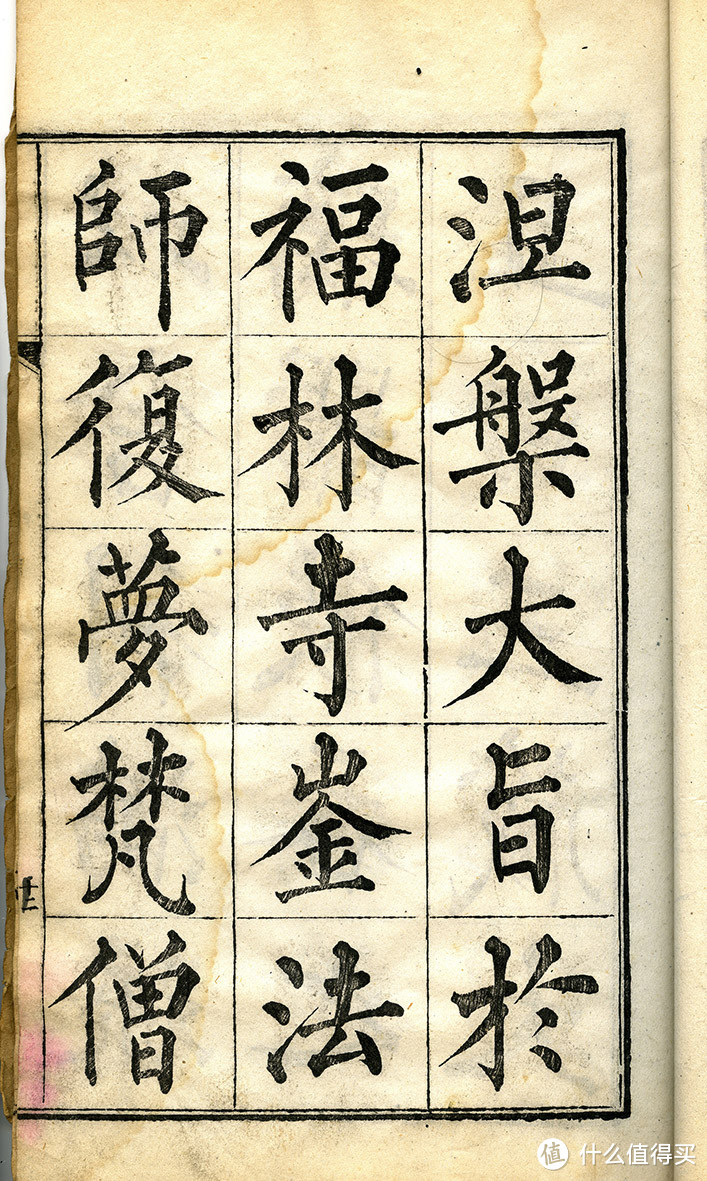 涅槃大旨於
福林寺崟法
師復夢梵僧
值 什么值得买